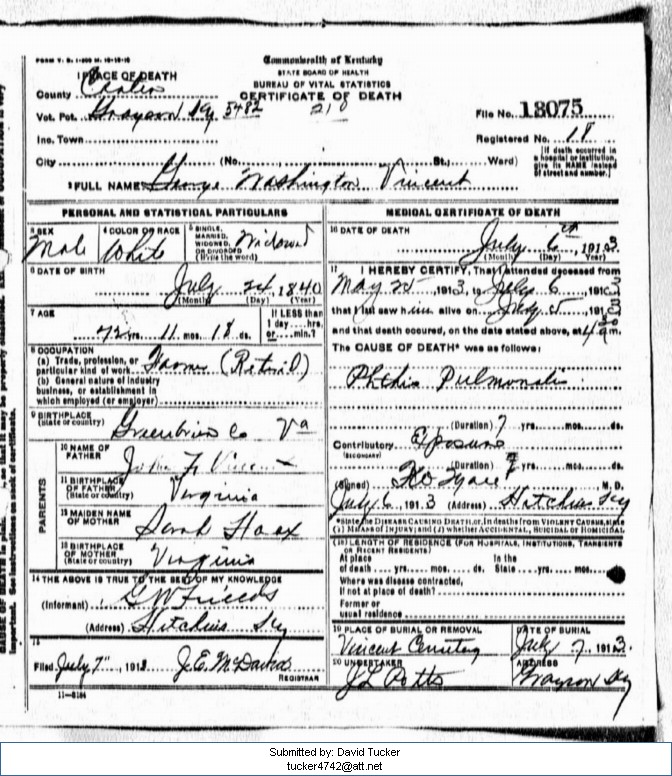 FORM V. S. 1-
Commonwealth of Kentucky
STATE BOARD OF HEALTH
BUREAU OF VITAL STATISTICS
CERTIFICATE OF DEATH
1 PLACE OF DEATH
County Carter
Vot. Pct. Grayson 19 5482
210
File No. 13075
Inc. Town
Registered No. 18
City (No. St., Ward)
[If death occurred in a hospital or institution, give its NAME instead of street and number.]
2 FULL NAME George Washington Vincent
PERSONAL AND STATISTICAL PARTICULARS
3 SEX Male
4 COLOR OR RACE White
5 SINGLE, MARRIED, WIDOWED, OR DIVORCED (Write the word) Widowed
6 DATE OF BIRTH
July 24, 1840
(Month) (Day) (Year)
7 AGE
72 yrs. 11 mos. 18 ds.
If LESS than 1 day....hrs. or....min.?
8 OCCUPATION
(a) Trade, profession, or particular kind of work Farmer (Retired)
(b) General nature of industry business, or establishment in which employed (or employer)
9 BIRTHPLACE
(State or country) Greenbrier Co Va
PARENTS
10 NAME OF FATHER John F Vincent
11 BIRTHPLACE OF FATHER (State or country) Virginia
12 MAIDEN NAME OF MOTHER Sarah
13 BIRTHPLACE OF MOTHER (State or country) Virginia
14 THE ABOVE IS TRUE TO THE BEST OF MY KNOWLEDGE
(Informant) G W
(Address) Hitchins Ky
15
Filed July 7", 1913 J.E. McDavid
REGISTRAR
11-6184
MEDICAL CERTIFICATE OF DEATH
16 DATE OF DEATH
July 6th, 1913
(Month) (Day) (Year)
17 I HEREBY CERTIFY, That I attended deceased from
May 25, 1913, to July 6, 1913
that I last saw him alive on July 5, 1913
and that death occured, on the date stated above, at 4 30 am.
The CAUSE OF DEATH* was as follows:
Phthis Pulmonalis
(Duration) ? yrs. mos. ds.
Contributory Exposure
(SECONDARY)
(Duration) ? yrs. mos. ds.
(Signed) M. D.
July 6, 1913 (Address) Hitchins Ky
*State the DISEASE CAUSING DEATH, or, in deaths from VIOLENT CAUSES, state (1) MEANS OF INJURY; and (2) whether ACCIDENTAL, SUICIDAL or HOMICIDAL
18 LENGTH OF RESIDENCE (FOR HOSPITALS, INSTITUTIONS, TRANSIENTS OR RECENT RESIDENTS)
At place of death yrs. mos. ds. In the State yrs. mos. ds.
Where was disease contracted,
If not at place of death?
Former or usual residence
19 PLACE OF BURIAL OR REMOVAL
Vincent Cemetery
DATE OF BURIAL
July 7, 1913.
20 UNDERTAKER
J L Potts
ADDRESS
Grayson Ky
Submitted by: David Tucker
tucker4742@att.net